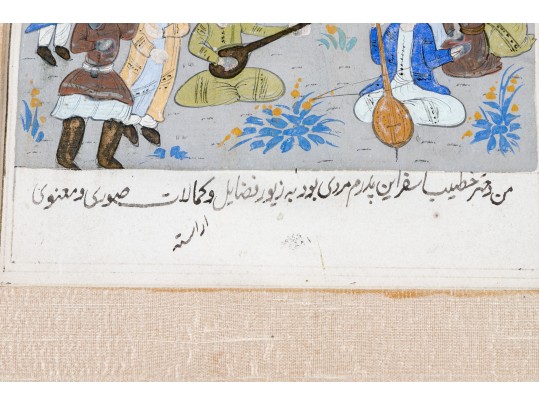 من دختر خطیب اسفراین پدرم مردی بود به زیور فضایل و کمالات صوری و معنوی
اراسته